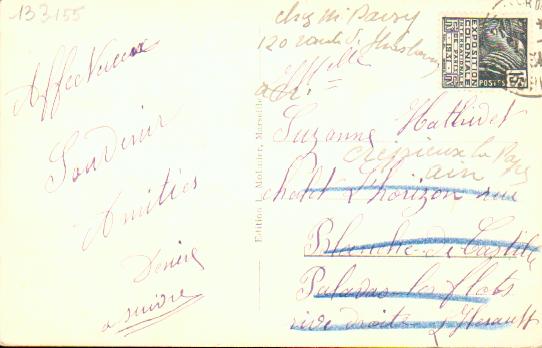 133155
Affectueux
Souvenir
Amitiés
Denise
à suivre
Edition L. Molinier, Marseille
chez Mr
120 route de Strasbourg
Melle
Suzanne Mathidet
Crépieux la Pape
ain
chalet L'horizon rue
Blanche de Castille
Palavas les flots
rive droite L'Herault
EXPOSITION
COLONIALE
INTERNATIONALE
PARIS 1931
POSTES
15c